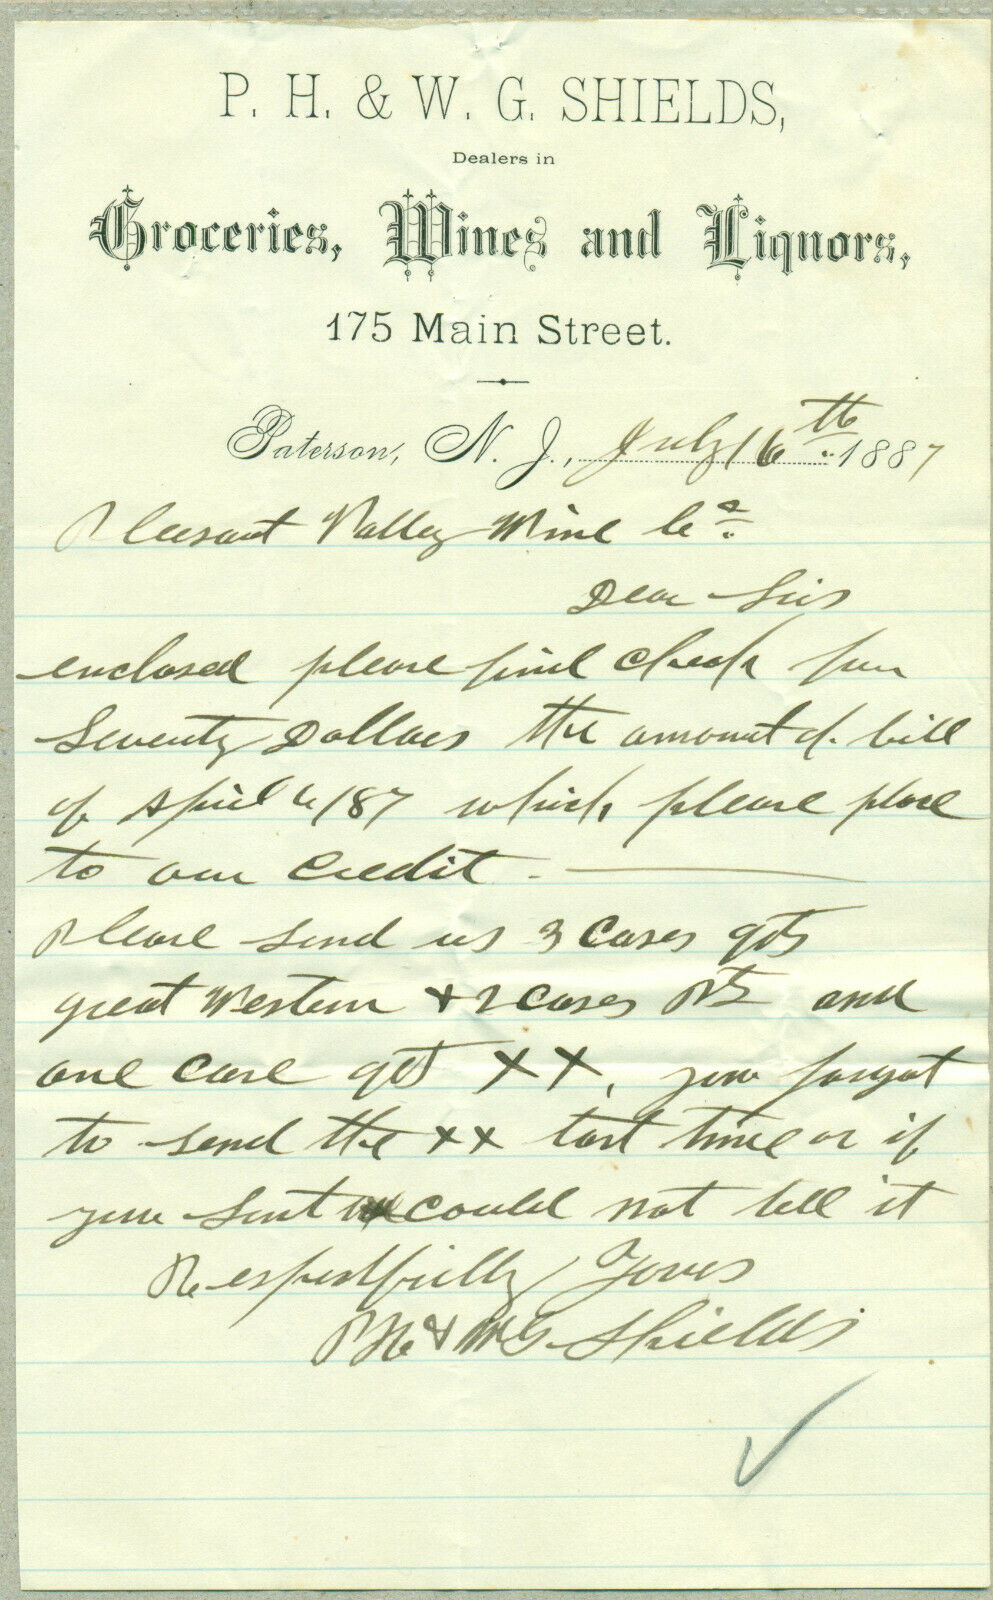 P. H. & W. G. SHIELDS,
Dealers in
Groceries, Wines and Liquors,
175 Main Street.
Paterson, N. J., July 16th 1887
Pleasant Valley Wine Co.
Dear Sirs
enclosed please find check for
Seventy Dollars the amount of bill
of April 6/87 which please place
to our credit. —
Please send us 3 cases qts
great Western + 2 cases Pts and
one case qts XX, you forgot
to send the XX last time or if
you sent could not tell it
Respectfully Yours
PH & WG Shields